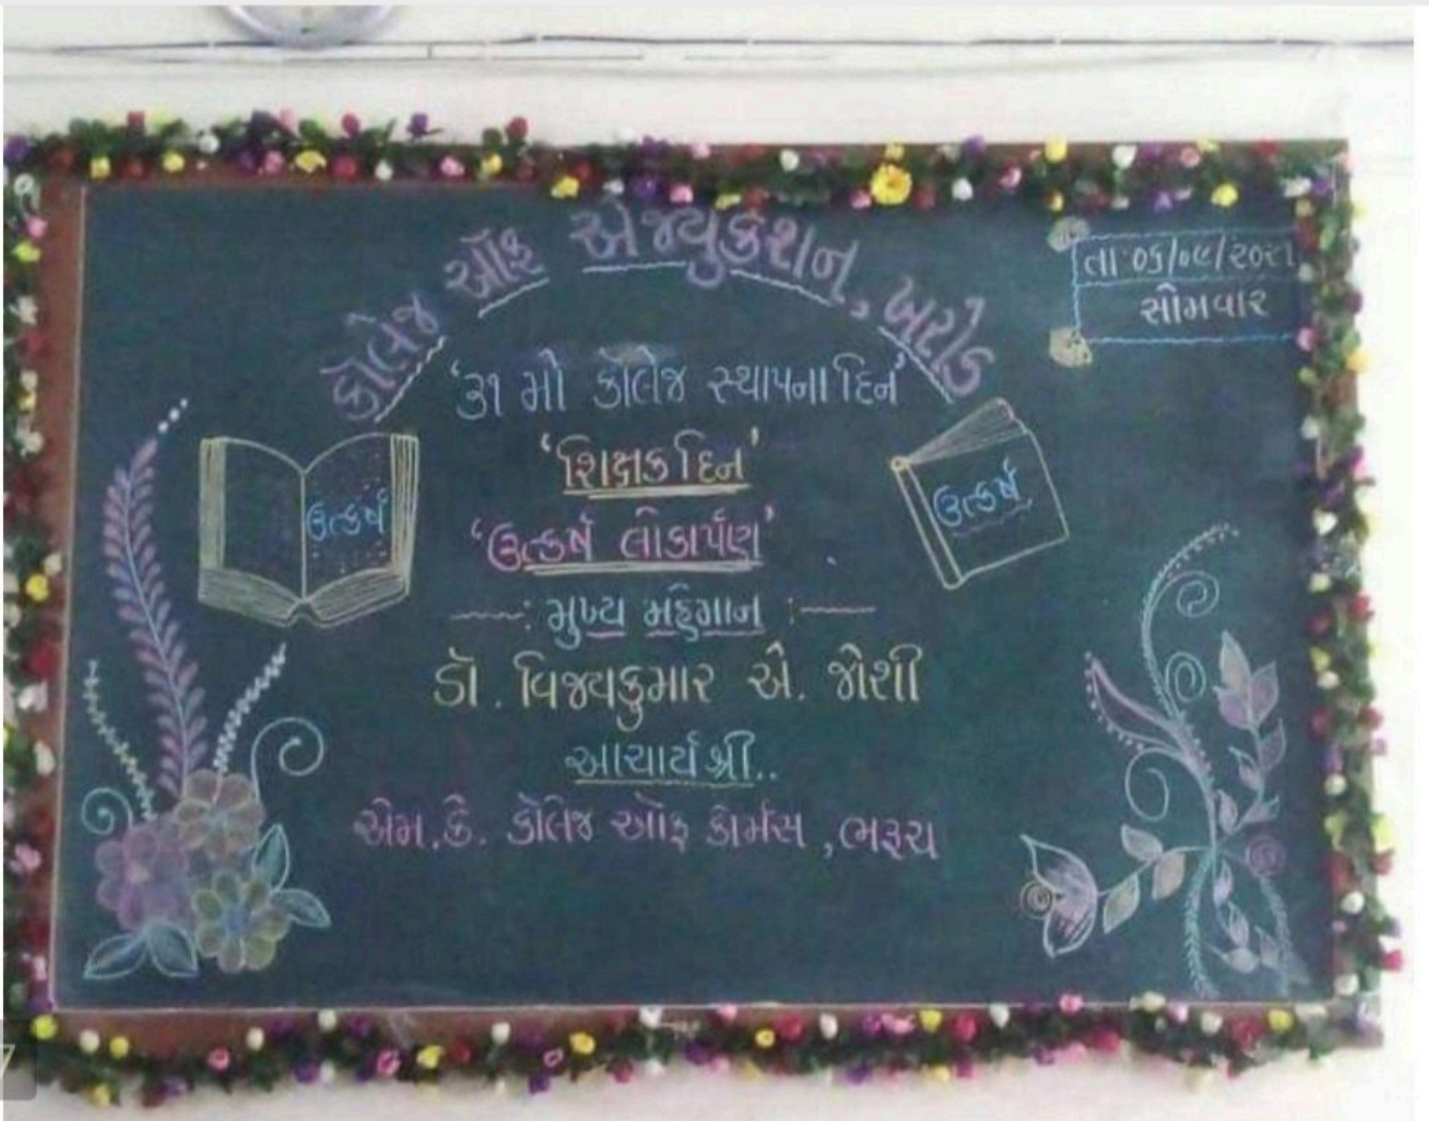 કોલેજ ઑફ એજ્યુકેશન, ખરોડ
તા: ૦૬/૦૯/૨૦૨૧
સોમવાર
'૩૧ મો કૉલેજ સ્થાપના દિન'
'શિક્ષક દિન'
'ઉત્કર્ષ લોકાર્પણ'
ઉત્કર્ષ
ઉત્કર્ષ
—: મુખ્ય મહેમાન :—
ડૉ. વિજયકુમાર એ. જોશી
આચાર્ય શ્રી..
એમ. કે. કૉલેજ ઑફ કોમર્સ, ભરૂચ